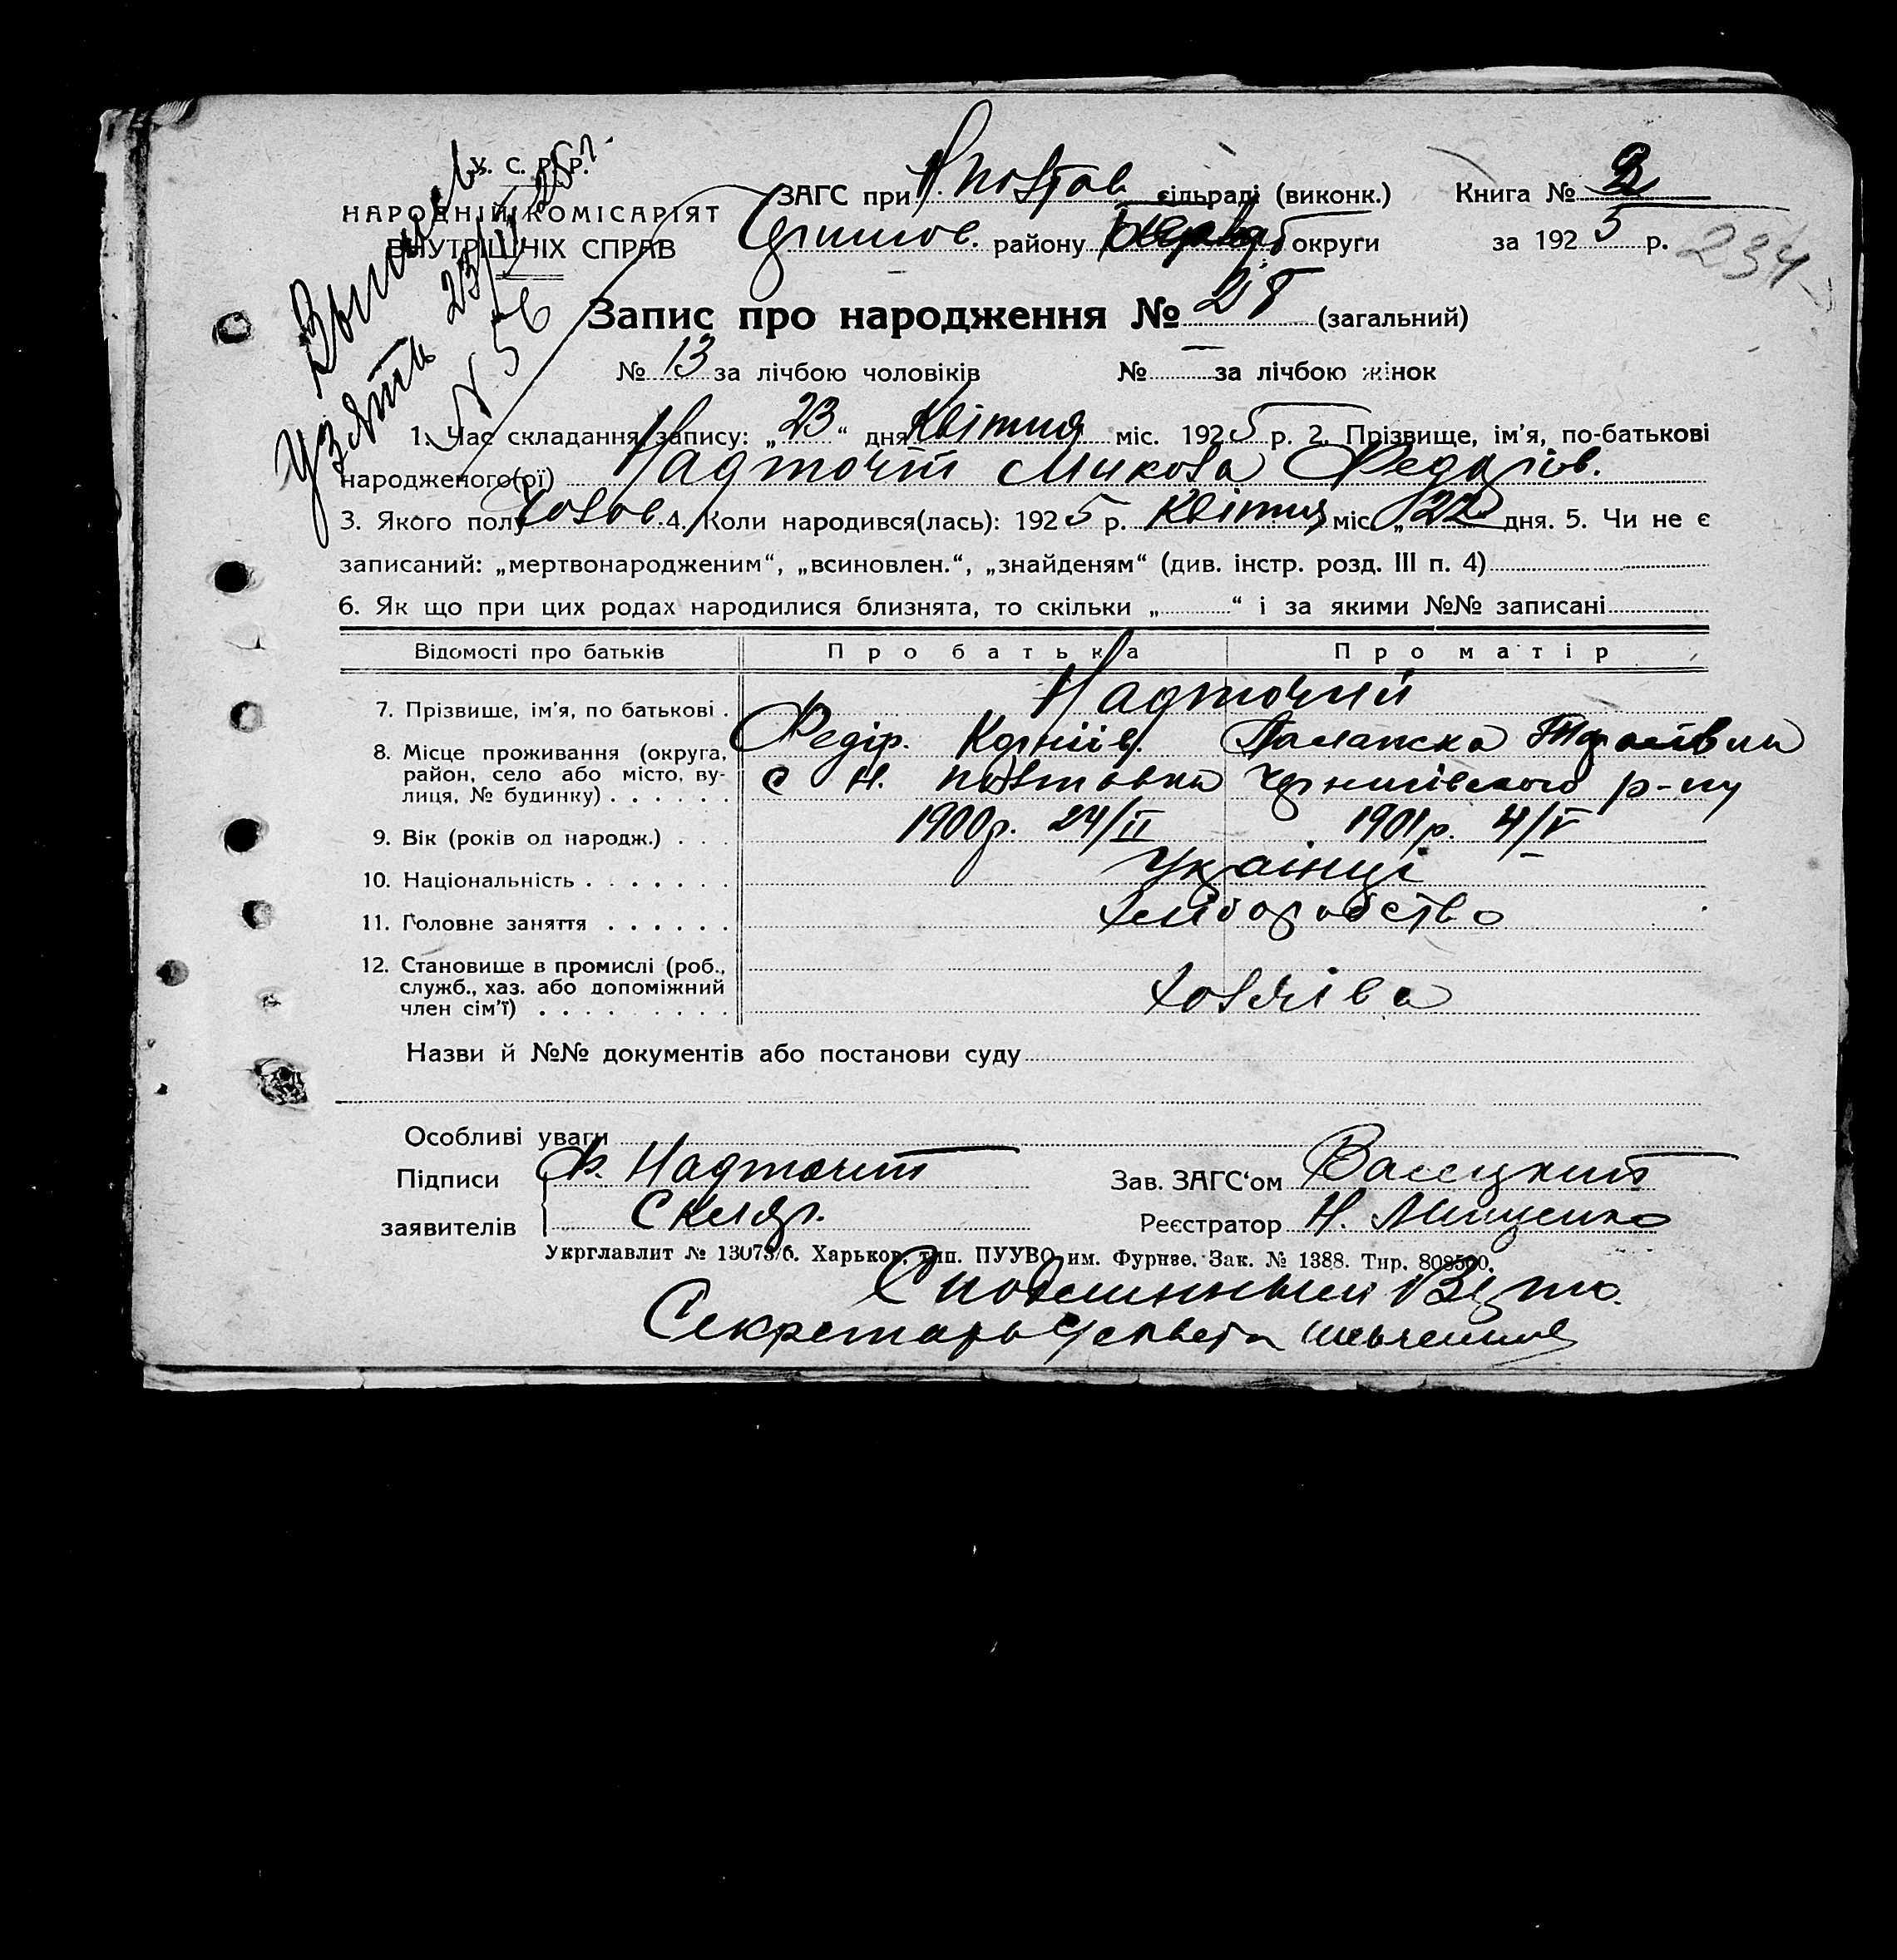 У. С. Р. Р.
НАРОДНІЙ КОМІСАРІЯТ
ВНУТРІШНІХ СПРАВ
Выпись
узята 23/IV 25 г.
№ 56
ЗАГС при Н. Полтав. сільраді (виконк.)
району округи
Книга № 2
за 1925 р.
234
Запис про народження № 28 (загальний)
№ 13 за лічбою чоловіків № — за лічбою жінок
1. Час складання запису: „23“ дня Квітня міс. 1925 р. 2. Прізвище, ім'я, по-батькові
народженого(ої) Надточій Микола Федоров.
3. Якого полу чолов. 4. Коли народився(лась): 1925 р. Квітня міс. „22 дня. 5. Чи не є
записаний: „мертвонародженим“, „всиновлен.“, „знайденям“ (див. інстр. розд. III п. 4)
6. Як що при цих родах народилися близнята, то скільки „ “ і за якими №№ записані
Відомості про батьків Про батька Про матір
7. Прізвище, ім'я, по батькові . Надточий
Федір. Корніїв. Палажка
8. Місце проживання (округа,
район, село або місто, ву-
лиця, № будинку) . . . . . .
с Н. Полтавка Чернигівського р-ну
9. Вік (років од народж.) . . . 1900 р. 24/II 1901 р. 4/V
10. Національність . . . . . . . Українці
11. Головне заняття . . . . . . хліборобство
12. Становище в промислі (роб.,
служб., хаз. або допоміжний
член сім'ї) . . . . . . . . .
хозяїва
Назви й №№ документів або постанови суду
Особливі уваги
Підписи Ф. Надточий
заявителів Скляр.
Зав. ЗАГС'ом Васецкий
Реєстратор Н. Мищенко
Укрглавлит № 13073/б. Харьков, тип. ПУУВО им. Фурнзе. Зак. № 1388. Тир. 808500.
С подлинным верно.
Секретарь сельсовета